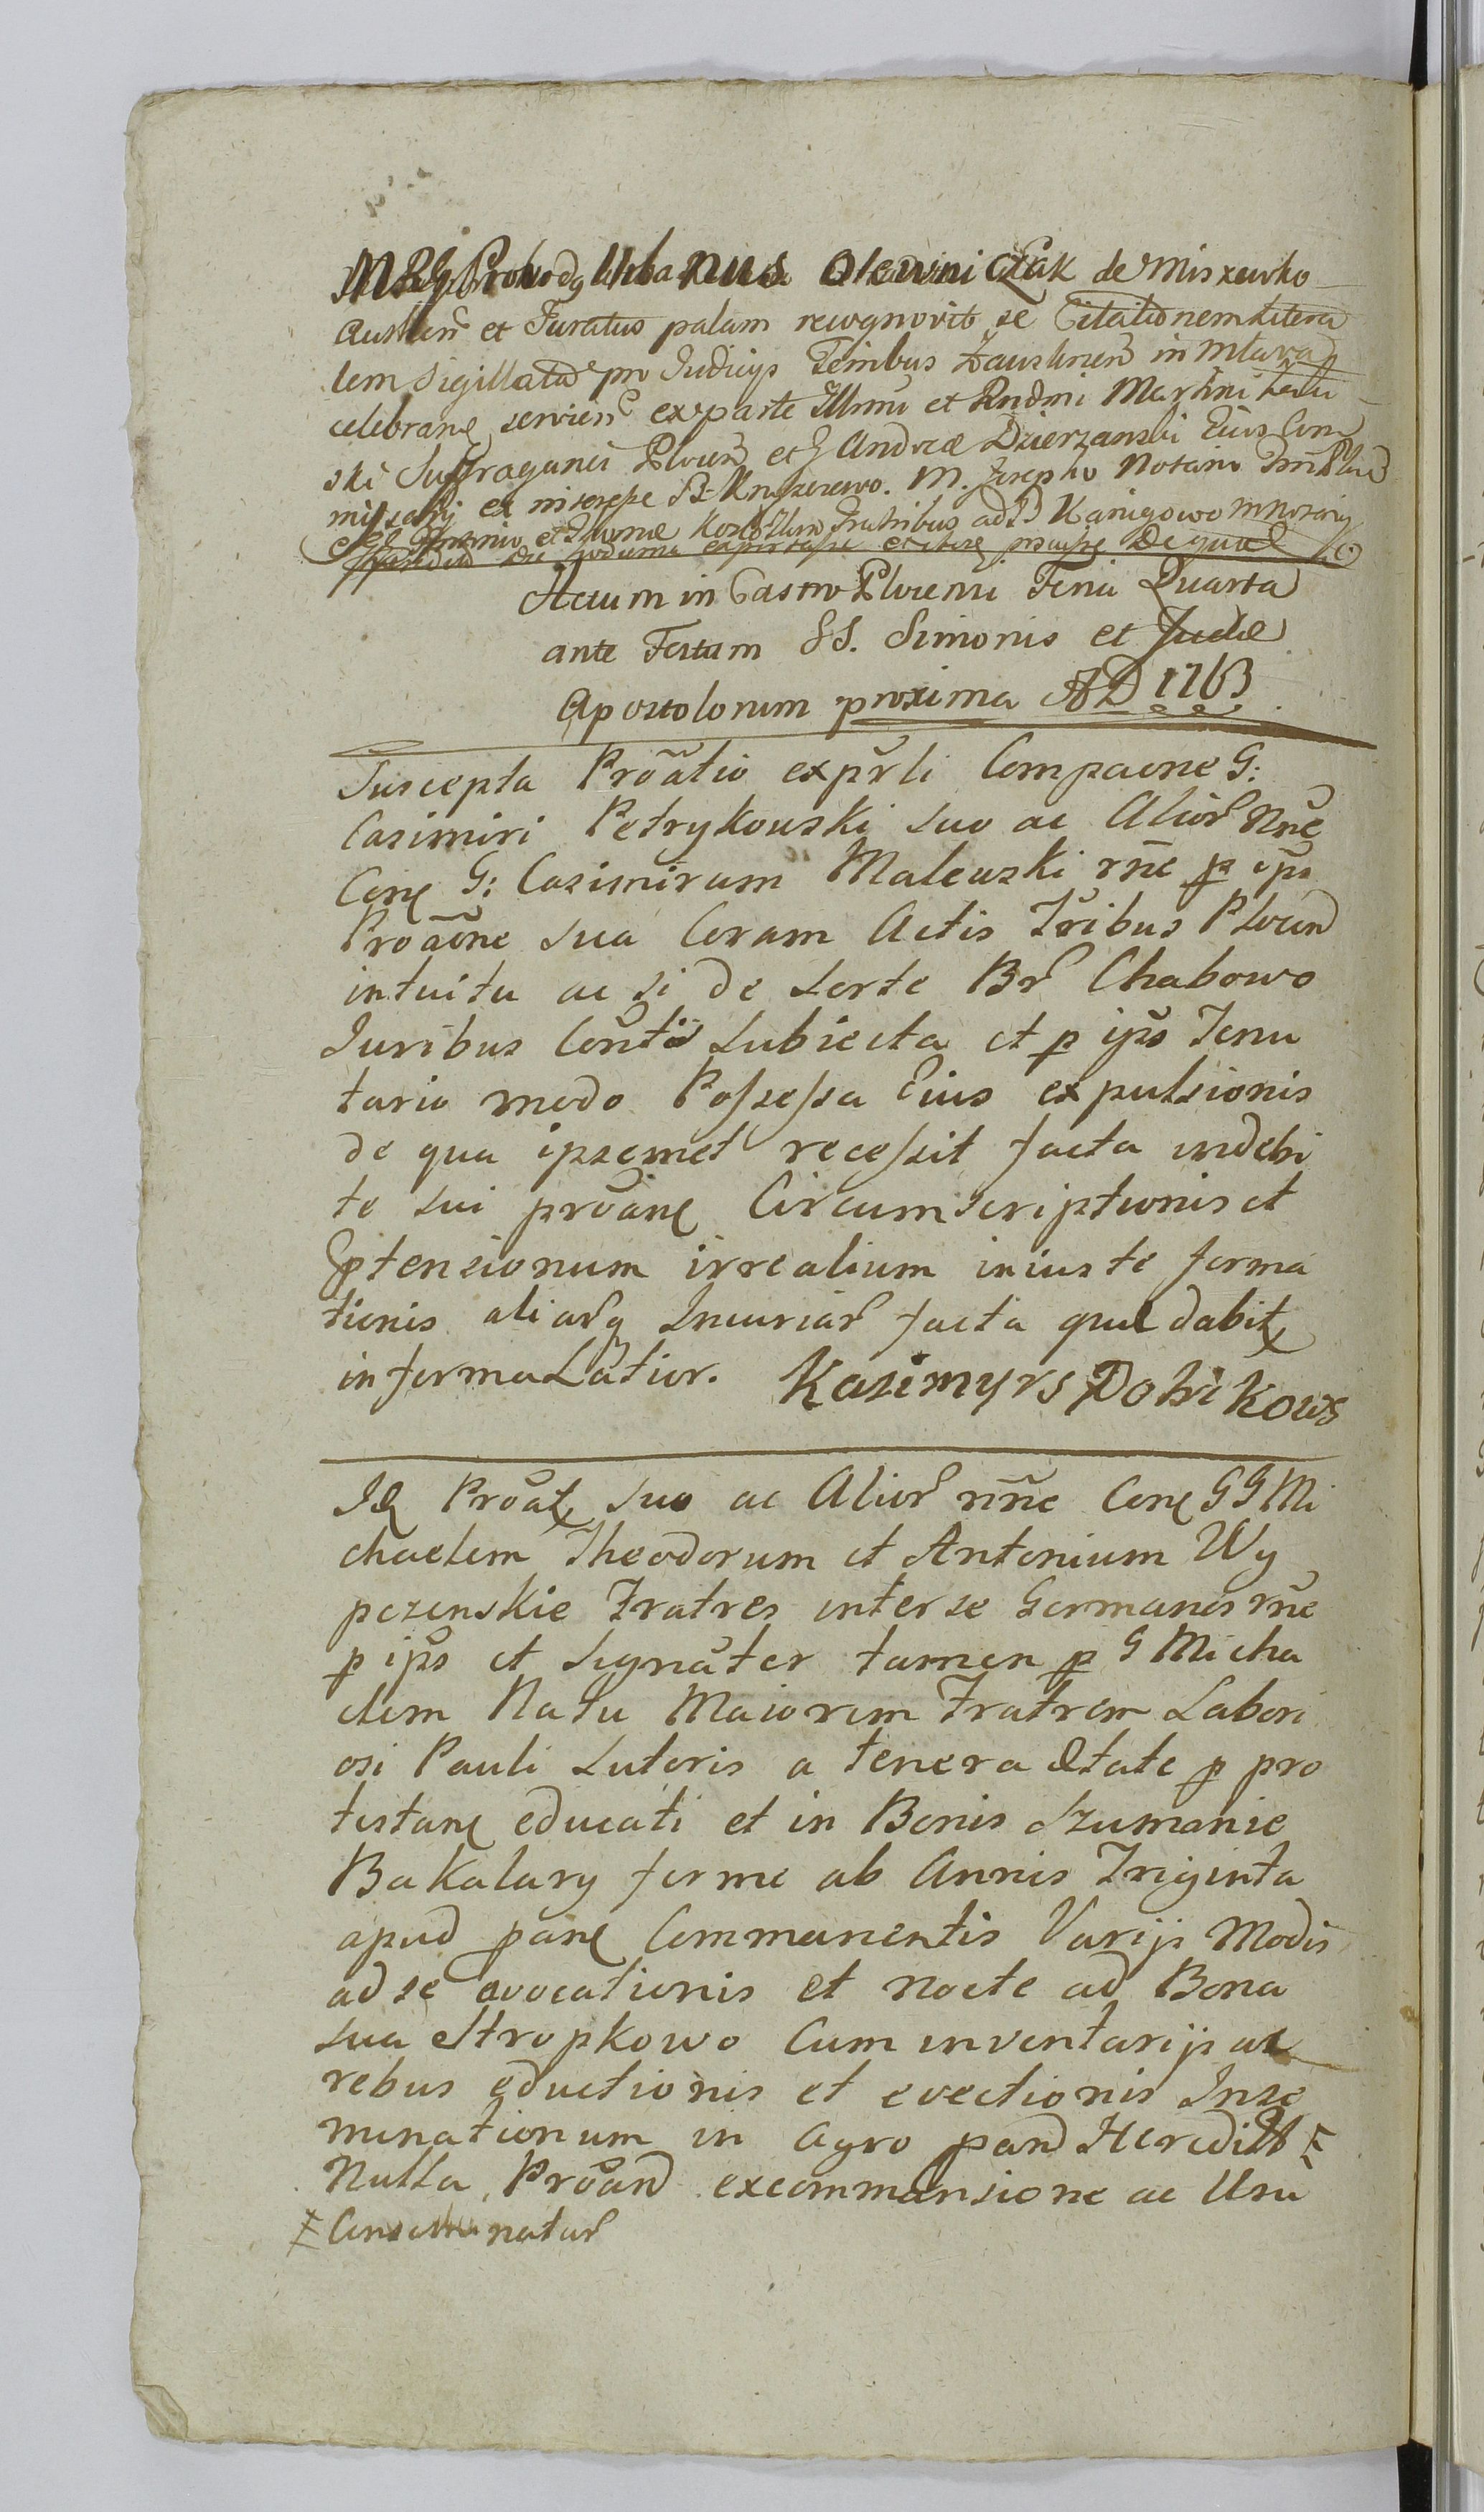 MRG Provodg Urbanus Olewniczak de Miszewko
Austhen et Juratus palam recognovit se Citationem litera
lem sigillatã pro Judicijs Terribus Zauskrien in Mlava
celebrane servien ex parte Illmi et Rndmi Martini
ski Suffraganei Plocen et G Andreæ Dzierzanski Eius Com
missarij ex interesse B. M. Josepho Notario Trrli Plocen
et Thomæ Fratribus ad B Kanigowo
die hodierna exportasse De quo
Actum in Castro Plocensi Feria Quarta
ante Festum SS. Simonis et Judæ
Apostolorum proxima AD 1763
Suscepta Proãtio expr̃li Compaone G:
Casimiri Petrykowski suo ac Alior̃ Nñe
Cone G: Casimirum Malewski rñe p ips̃
Proãõne sua Coram Actis Tr̃ibus Plocen
intuitu ac si de Sorte Br̃ Chabowo
Juribus Con̄tis Subiecta et p ips̃ Tenu
tario modo Possessa Eius expulsionis
de qua ipsemet recessit facta indebi
te sui prõane Circumscriptionis et
Ptensionum irrealium iniuste forma
tionis aliarq̃ Iniuriar̃ facta quæ dabit
in forma Latior. Kazimyrs Potrikows
Id Prõat suo ac Alior̃ nñe Cone GG Mi
chaelem Theodorum et Antonium Wy
pczenskie Fratres inter se Germanos rñe
p ips̃ et signãter tamen p G Micha
elem Natu Maiorem Fratrem Labori
osi Pauli Sutoris a tenera Ætate p pro
testane educati et in Bonis Szumanie
Bakalary ferme ab Annis Triginta
apud pane Commanentis Varijs Modis
ad se evocationis et nocte ad Bona
sua Stropkowo Cum inventarijs ac
rebus eductionis et evectionis Inse
minationum in Agro pand Heredit
Nulla Prõand excommansione ac Usu
Conseminatar̃